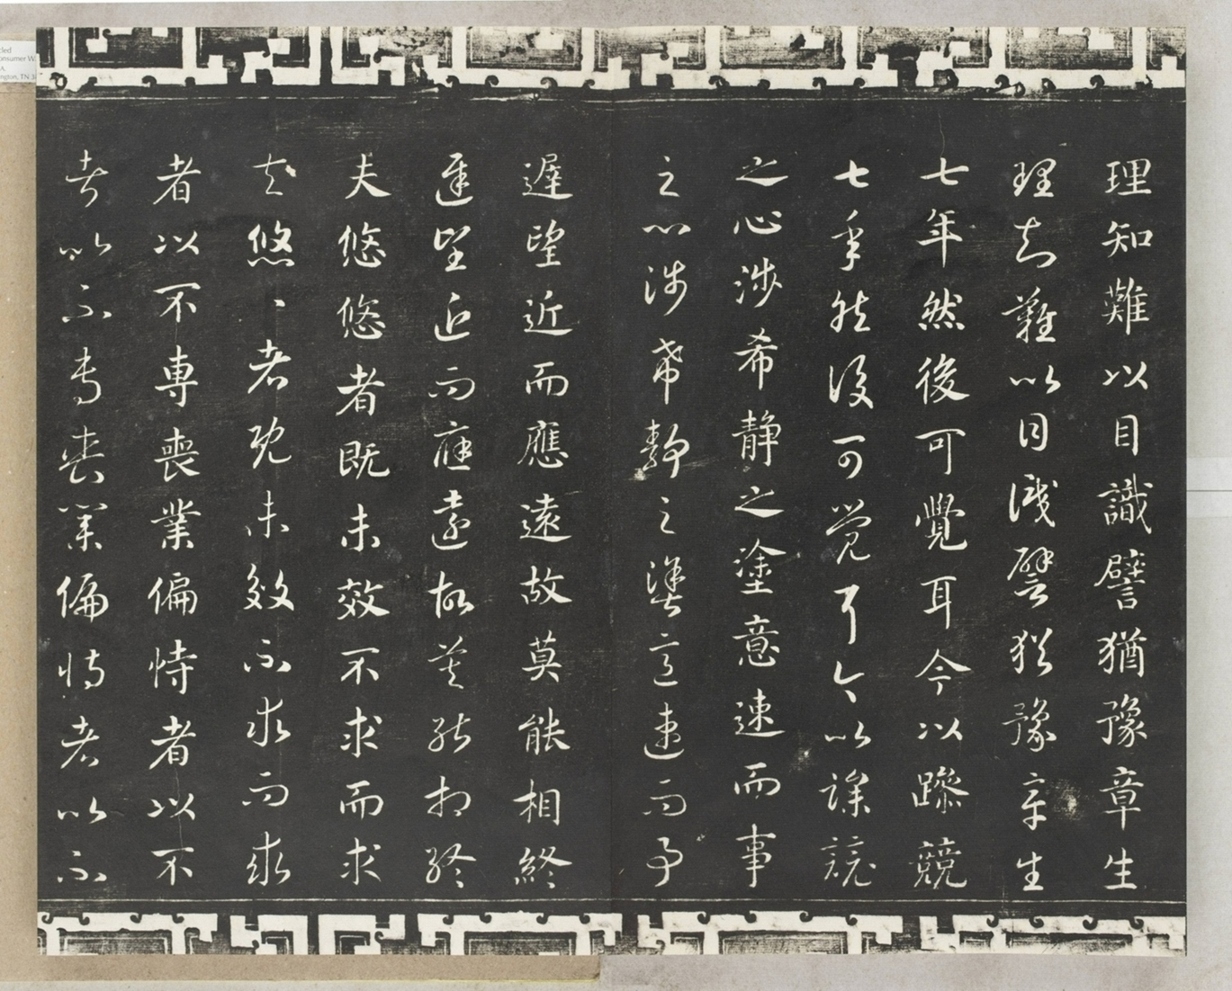 理知難以目識譬猶豫章生
理知難以目識譬猶豫章生
七年然後可覺耳今以躁競
七年然後可覺耳今以躁競
之心涉希静之塗意速而事
之心涉希静之塗意速而事
遲望近而應遠故莫能相終
遲望近而應遠故莫能相終
夫悠悠者既未效不求而求
夫悠〻者既未效不求而求
者以不專喪業偏恃者以不
者以不專喪業偏恃者以不